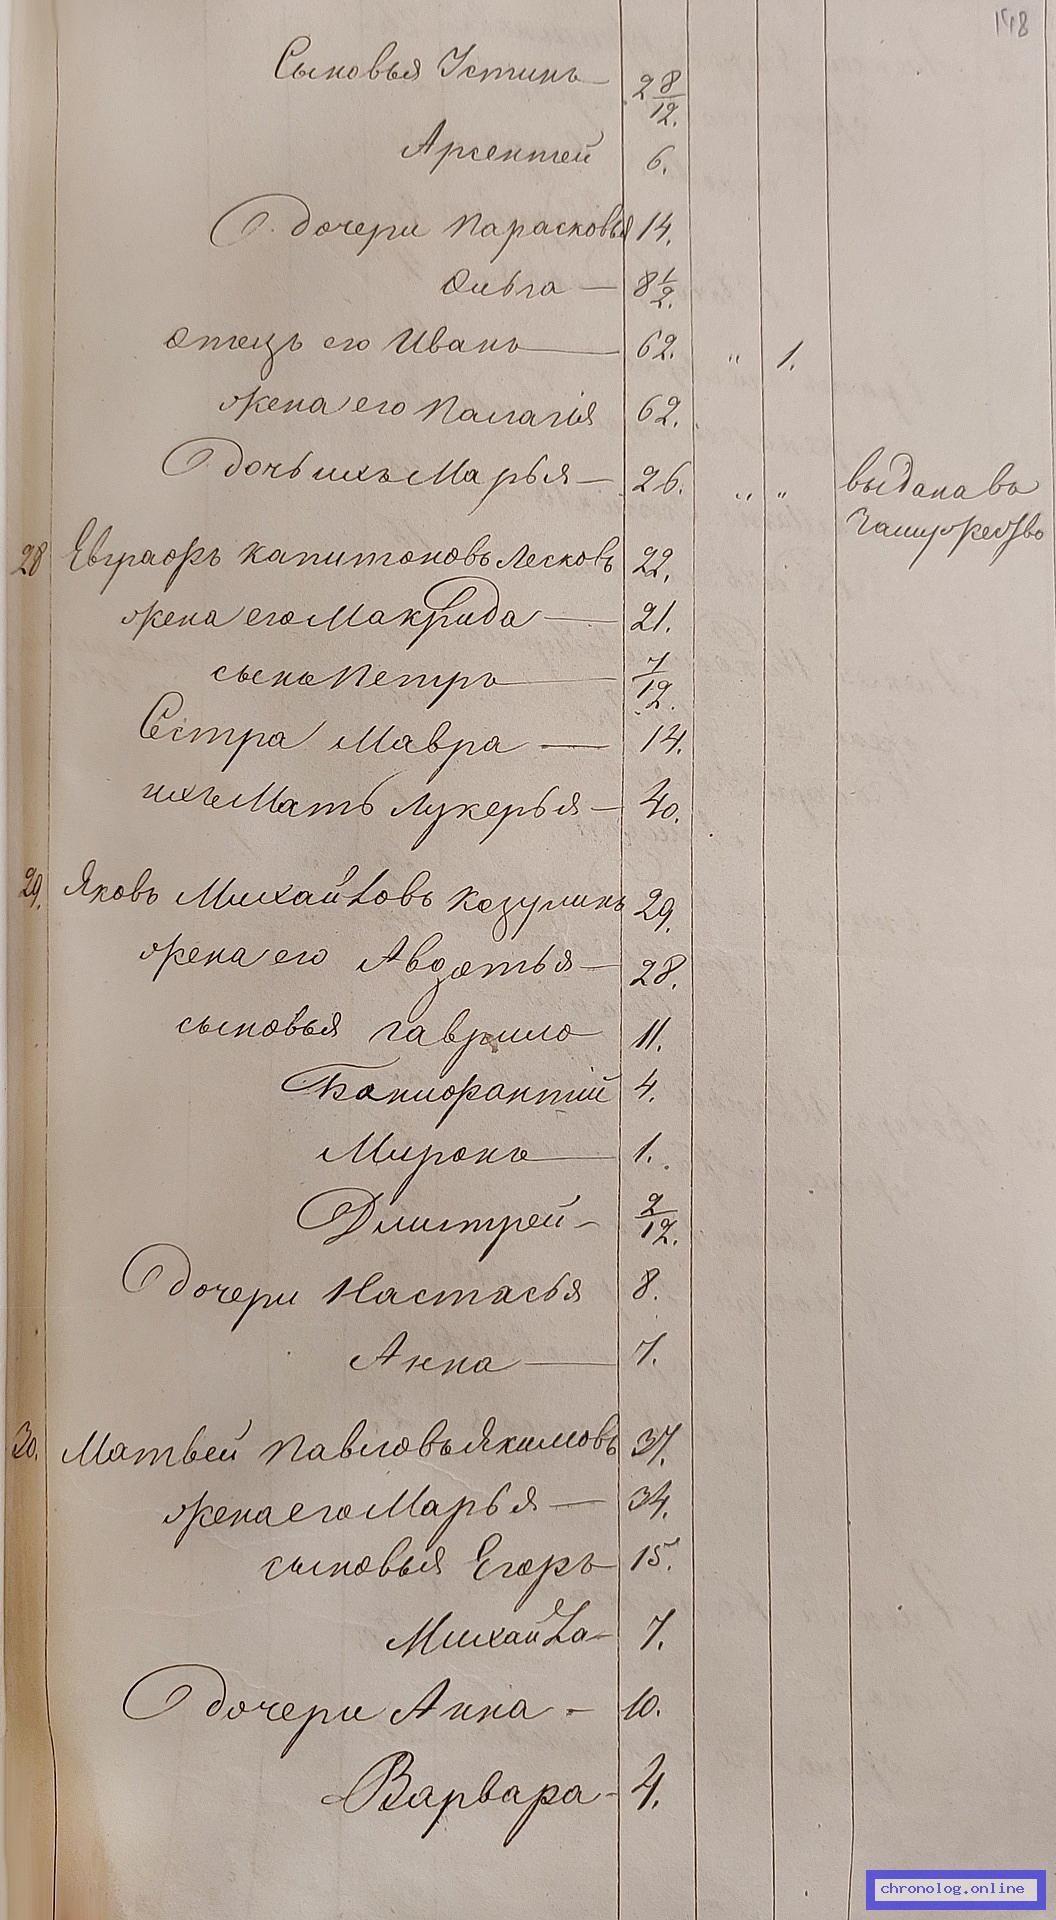 148
Сыновья Устинъ — 2 8/12.
Арсентей 6.
дочери Парасковья 14.
Ольга — 8 1/2.
Отецъ его Иванъ — 62. „ 1.
жена его Палагія 62.
дочь ихъ Марья — 26. „ „ выдана въ
замужество
28 Евграфъ Капитоновъ Лесковъ 22.
жена его Макрида — 21.
сынъ Петръ — 7/12.
Сестра Мавра — 14.
ихъ Мать Лукерья — 40.
29. Яковъ Михайловъ Козулинъ 29.
жена его Авдотья — 28.
сыновья Гаврило 11.
4.
Миронъ — 1.
Дмитрей — 2/12.
дочери Настасья 8.
Анна — 7.
30. Матвей Павловъ Якимовъ 37.
жена его Марья — 34.
сыновья Егоръ 15.
Михайла — 7.
дочери Анна — 10.
Варвара — 4.
chronolog.online